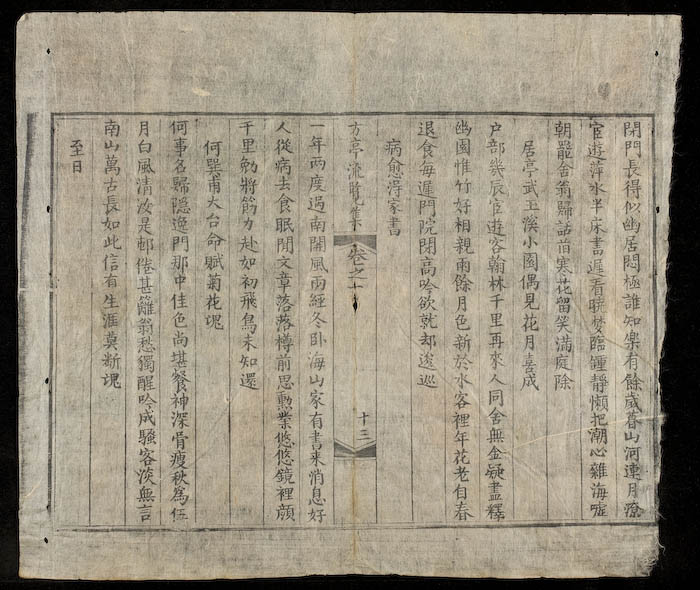 閉門長得似幽居悶極誰知樂有餘歲暮山河連月潦
宦遊萍水半床書遲看曉焚臨鍾靜懶把潮心雜海噓
朝罷舍翁歸話旨寒花留笑滿庭除
居亭武玉溪小園偶見花月喜成
户部幾辰宦遊客翰林千里再來人同舍無金疑盡釋
幽園惟竹好相親雨餘月色新於水客裡年花老自春
退食每遲門院閉高吟欲就却逡巡
病愈得家書
方亭流覽集 卷之一 十三
一年兩度過南關風雨經冬卧海山家有書来消息好
人從病去食眠閒文章落落樽前思勳業悠悠鏡裡顔
千里勉將筋力赴如初飛鳥未知還
何巽甫大台命賦菊花魂
何事名歸隐逸門那中佳色尚堪餐神深骨瘦秋為伍
月白風清汝是邨倦甚籬翁愁獨醒吟成騷客淡無言
南山萬古長如此信有生涯莫断魂
至日